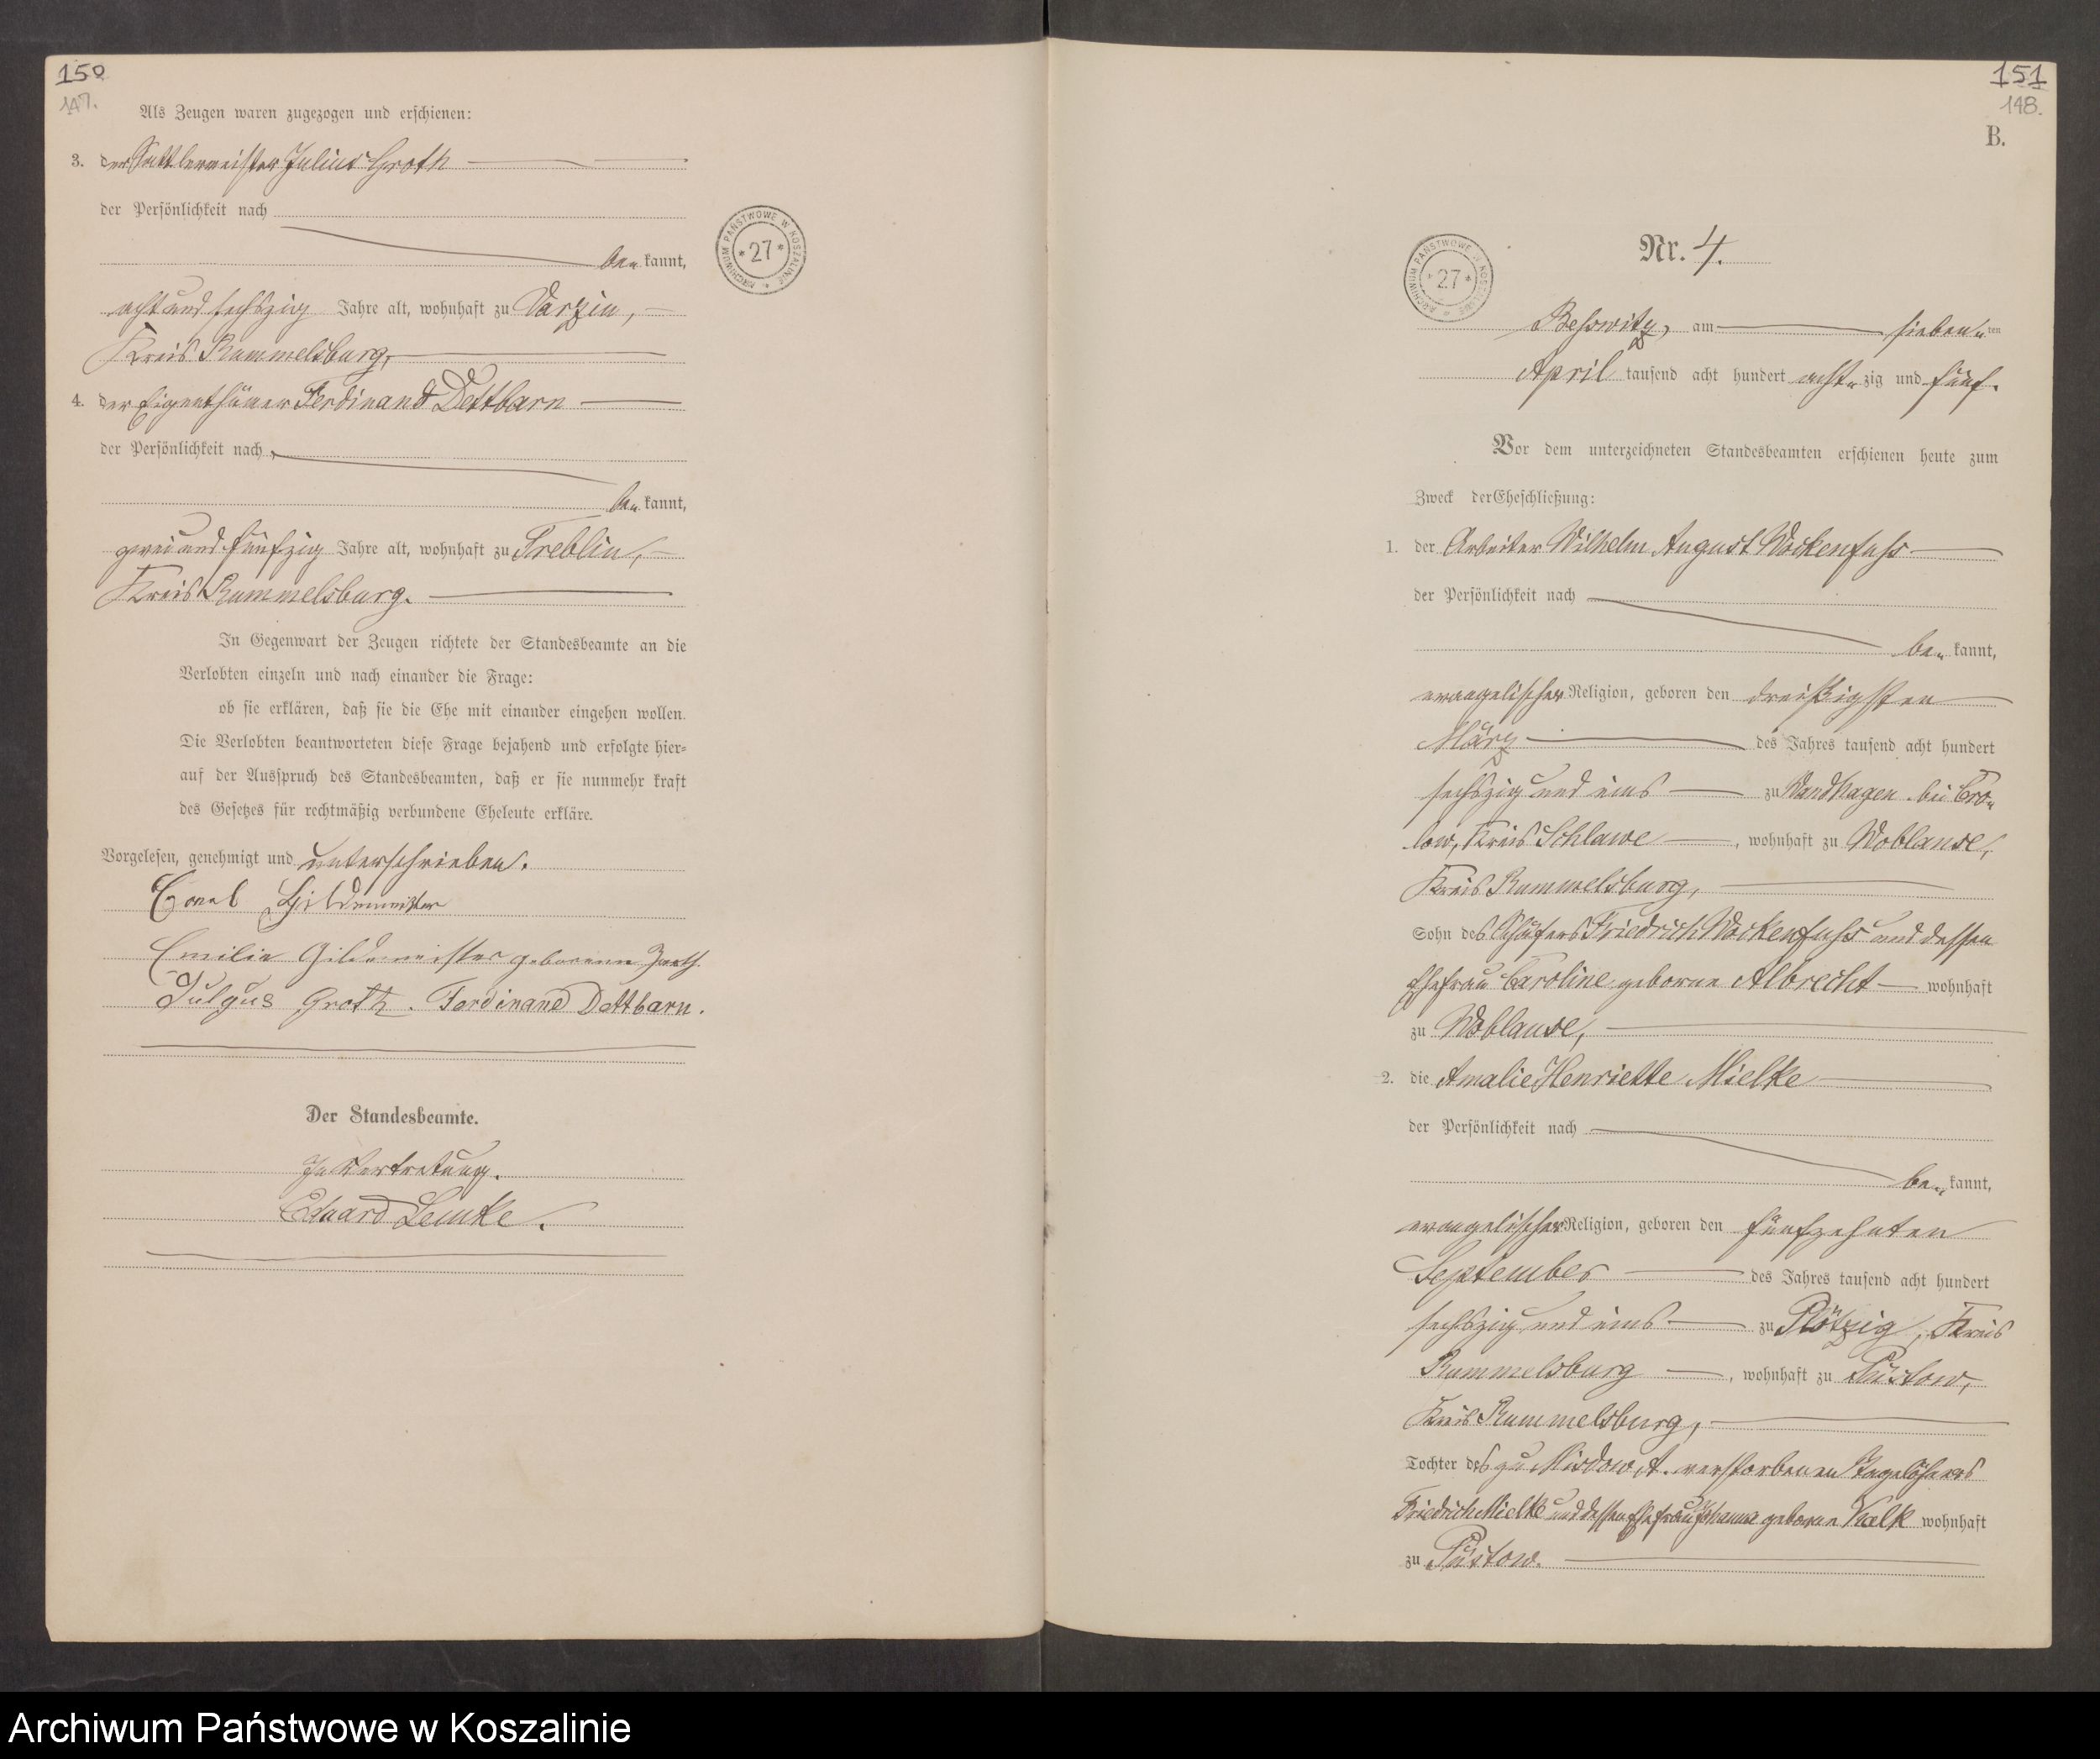 150
147.
Als Zeugen waren zugezogen und erschienen:
3. der Sattlermeister Julius Groth
der Persönlichkeit nach
be„ kannt,
acht und sechszig Jahre alt, wohnhaft zu Varzin,
Kreis Rummelsburg,
4. der Eigenthümer Ferdinand Dettbarn
der Persönlichkeit nach
be„ kannt,
zwei und fünfzig Jahre alt, wohnhaft zu Treblin,
Kreis Rummelsburg.
In Gegenwart der Zeugen richtete der Standesbeamte an die
Verlobten einzeln und nach einander die Frage:
ob sie erklären, daß sie die Ehe mit einander eingehen wollen.
Die Verlobten beantworteten diese Frage bejahend und erfolgte hier=
auf der Ausspruch des Standesbeamten, daß er sie nunmehr kraft
des Gesetzes für rechtmäßig verbundene Eheleute erkläre.
Vorgelesen, genehmigt und unterschrieben.
Gildemeister
Emilie Gildemeister geborenne
Julyus Groth. Ferdinand Dettbarn.
Der Standesbeamte.
In Vertretung.
Eduard Lemke.
ARCHIWUM PAŃSTWOWE W KOSZALINIE
* 27 *
151
148.
B.
ARCHIWUM PAŃSTWOWE W KOSZALINIE
* 27 *
Nr. 4.
Beßwitz, am sieben„ten
April tausend acht hundert acht„zig und fünf.
Vor dem unterzeichneten Standesbeamten erschienen heute zum
Zweck der Eheschließung:
1. der Arbeiter Wilhelm August Wockenfuss
der Persönlichkeit nach
be„ kannt,
evangelischer Religion, geboren den dreißigsten
März des Jahres tausend acht hundert
sechszig und eins zu Wandhagen bei Cro„
low, Kreis Schlawe, wohnhaft zu Woblanse,
Kreis Rummelsburg,
Sohn des Schäfers Friedrich Wockenfuss und dessen
Ehefrau Caroline geborne Albrecht wohnhaft
zu Woblanse,
2. die Amalie Henriette Mielke
der Persönlichkeit nach
be„ kannt,
evangelischer Religion, geboren den fünfzehnten
September des Jahres tausend acht hundert
sechszig und eins zu Plötzig, Kreis
Rummelsburg, wohnhaft zu Püstow,
Kreis Rummelsburg,
Tochter des zu Misdow A. verstorbenen Tagelöhners
Friedrich Mielke und dessen Ehefrau Johanne geborne Kalk wohnhaft
zu Püstow.
Archiwum Państwowe w Koszalinie